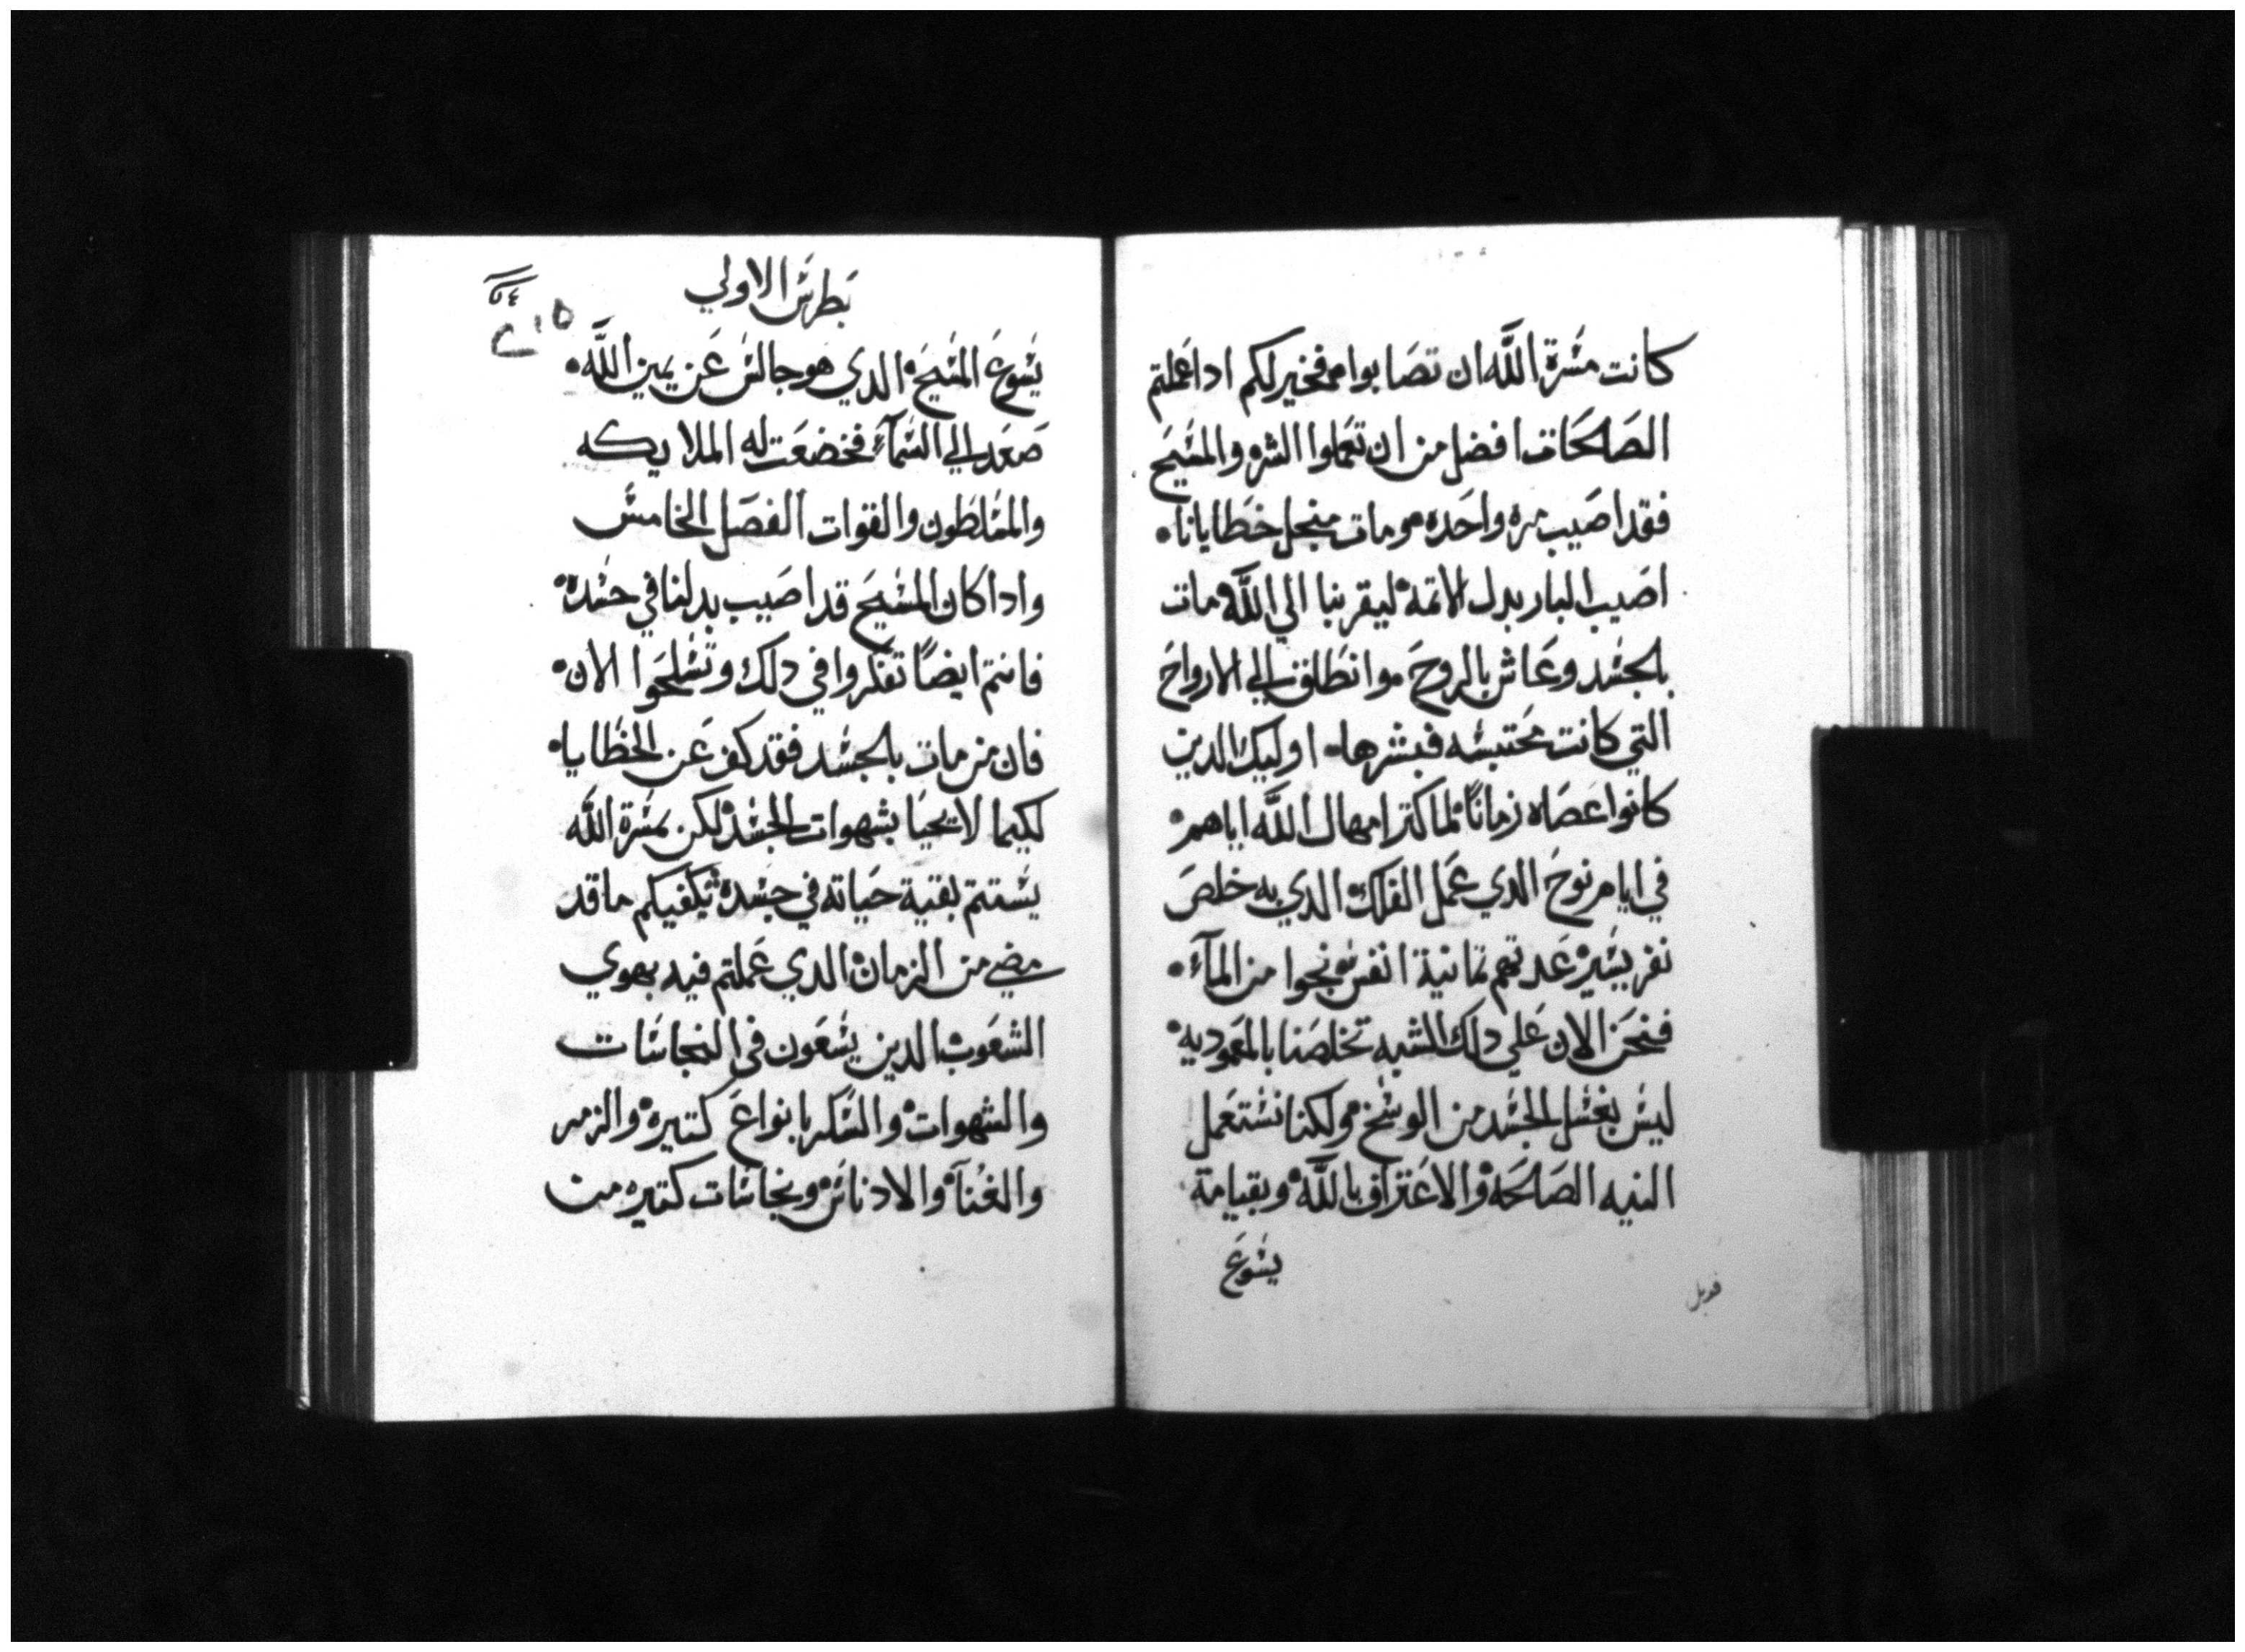 كانت مسرة اللَّه ان تصابوا فخير لكم ادا عملتم
الصَالحَات افضل من ان تعملوا الشر والمسَيح
فقد اصَيب مره واحَده ومات منجل خطايانا
اصَيب البار بدل الاتمة ليقربنا الي اللَّه مات
بالجسَد وعَاش بالروحَ وانطَلق الي الارواحَ
التي كانت محَتبسَه فبشرها اوليك الدين
كانوا عَصَاه زمانًا لما كتر امهال اللَّه اياهم
في ايام نوحَ الدي عَمل الفلك الدي به خلصَ
نفر يسَير عَدتهم تمانية انفس ونجوا من المآء
فنحَن الان عَلي دلك الشبه تخلصَنا بالمعَموديه
ليسَ بغسَل الجسَد من الوسَخ ولكنا نسَتعَمل
النيه الصَالحَة والاعَتراف باللَّه وبقيامة
يسَوعَ
قوبل
بَطرسَ الاولي
٢١٥
يسَوعَ المسَيحَ الدي هو جالسَ عَن يمين اللَّه
صَعَد الي السَمآء فخضعَت له الملايكه
والمسَلطَون والقوات الفصَل الخامسَ
وادا كان المسَيحَ قد اصَيب بدلنا في جسَدة
فانتم ايضًا تفكروا في دلك وتسَلحَوا الان
فان من مات بالجسَد فقد كف عَن الخطَايا
لكيما لا يحيَا بشهوات الجسَد لكن بمسَرة اللَّه
يسَتتم بقية حَياته في جسَدة يكفيكم ما قد
مضي من الزمان الدي عَملتم فيه بهوي
الشعَوب الدين يسَعَون في النجاسَات
والشهوات والسَكر بانواعَ كتيره والزمر
والغُنآ والادناسَ ونجاسَات كتيره من